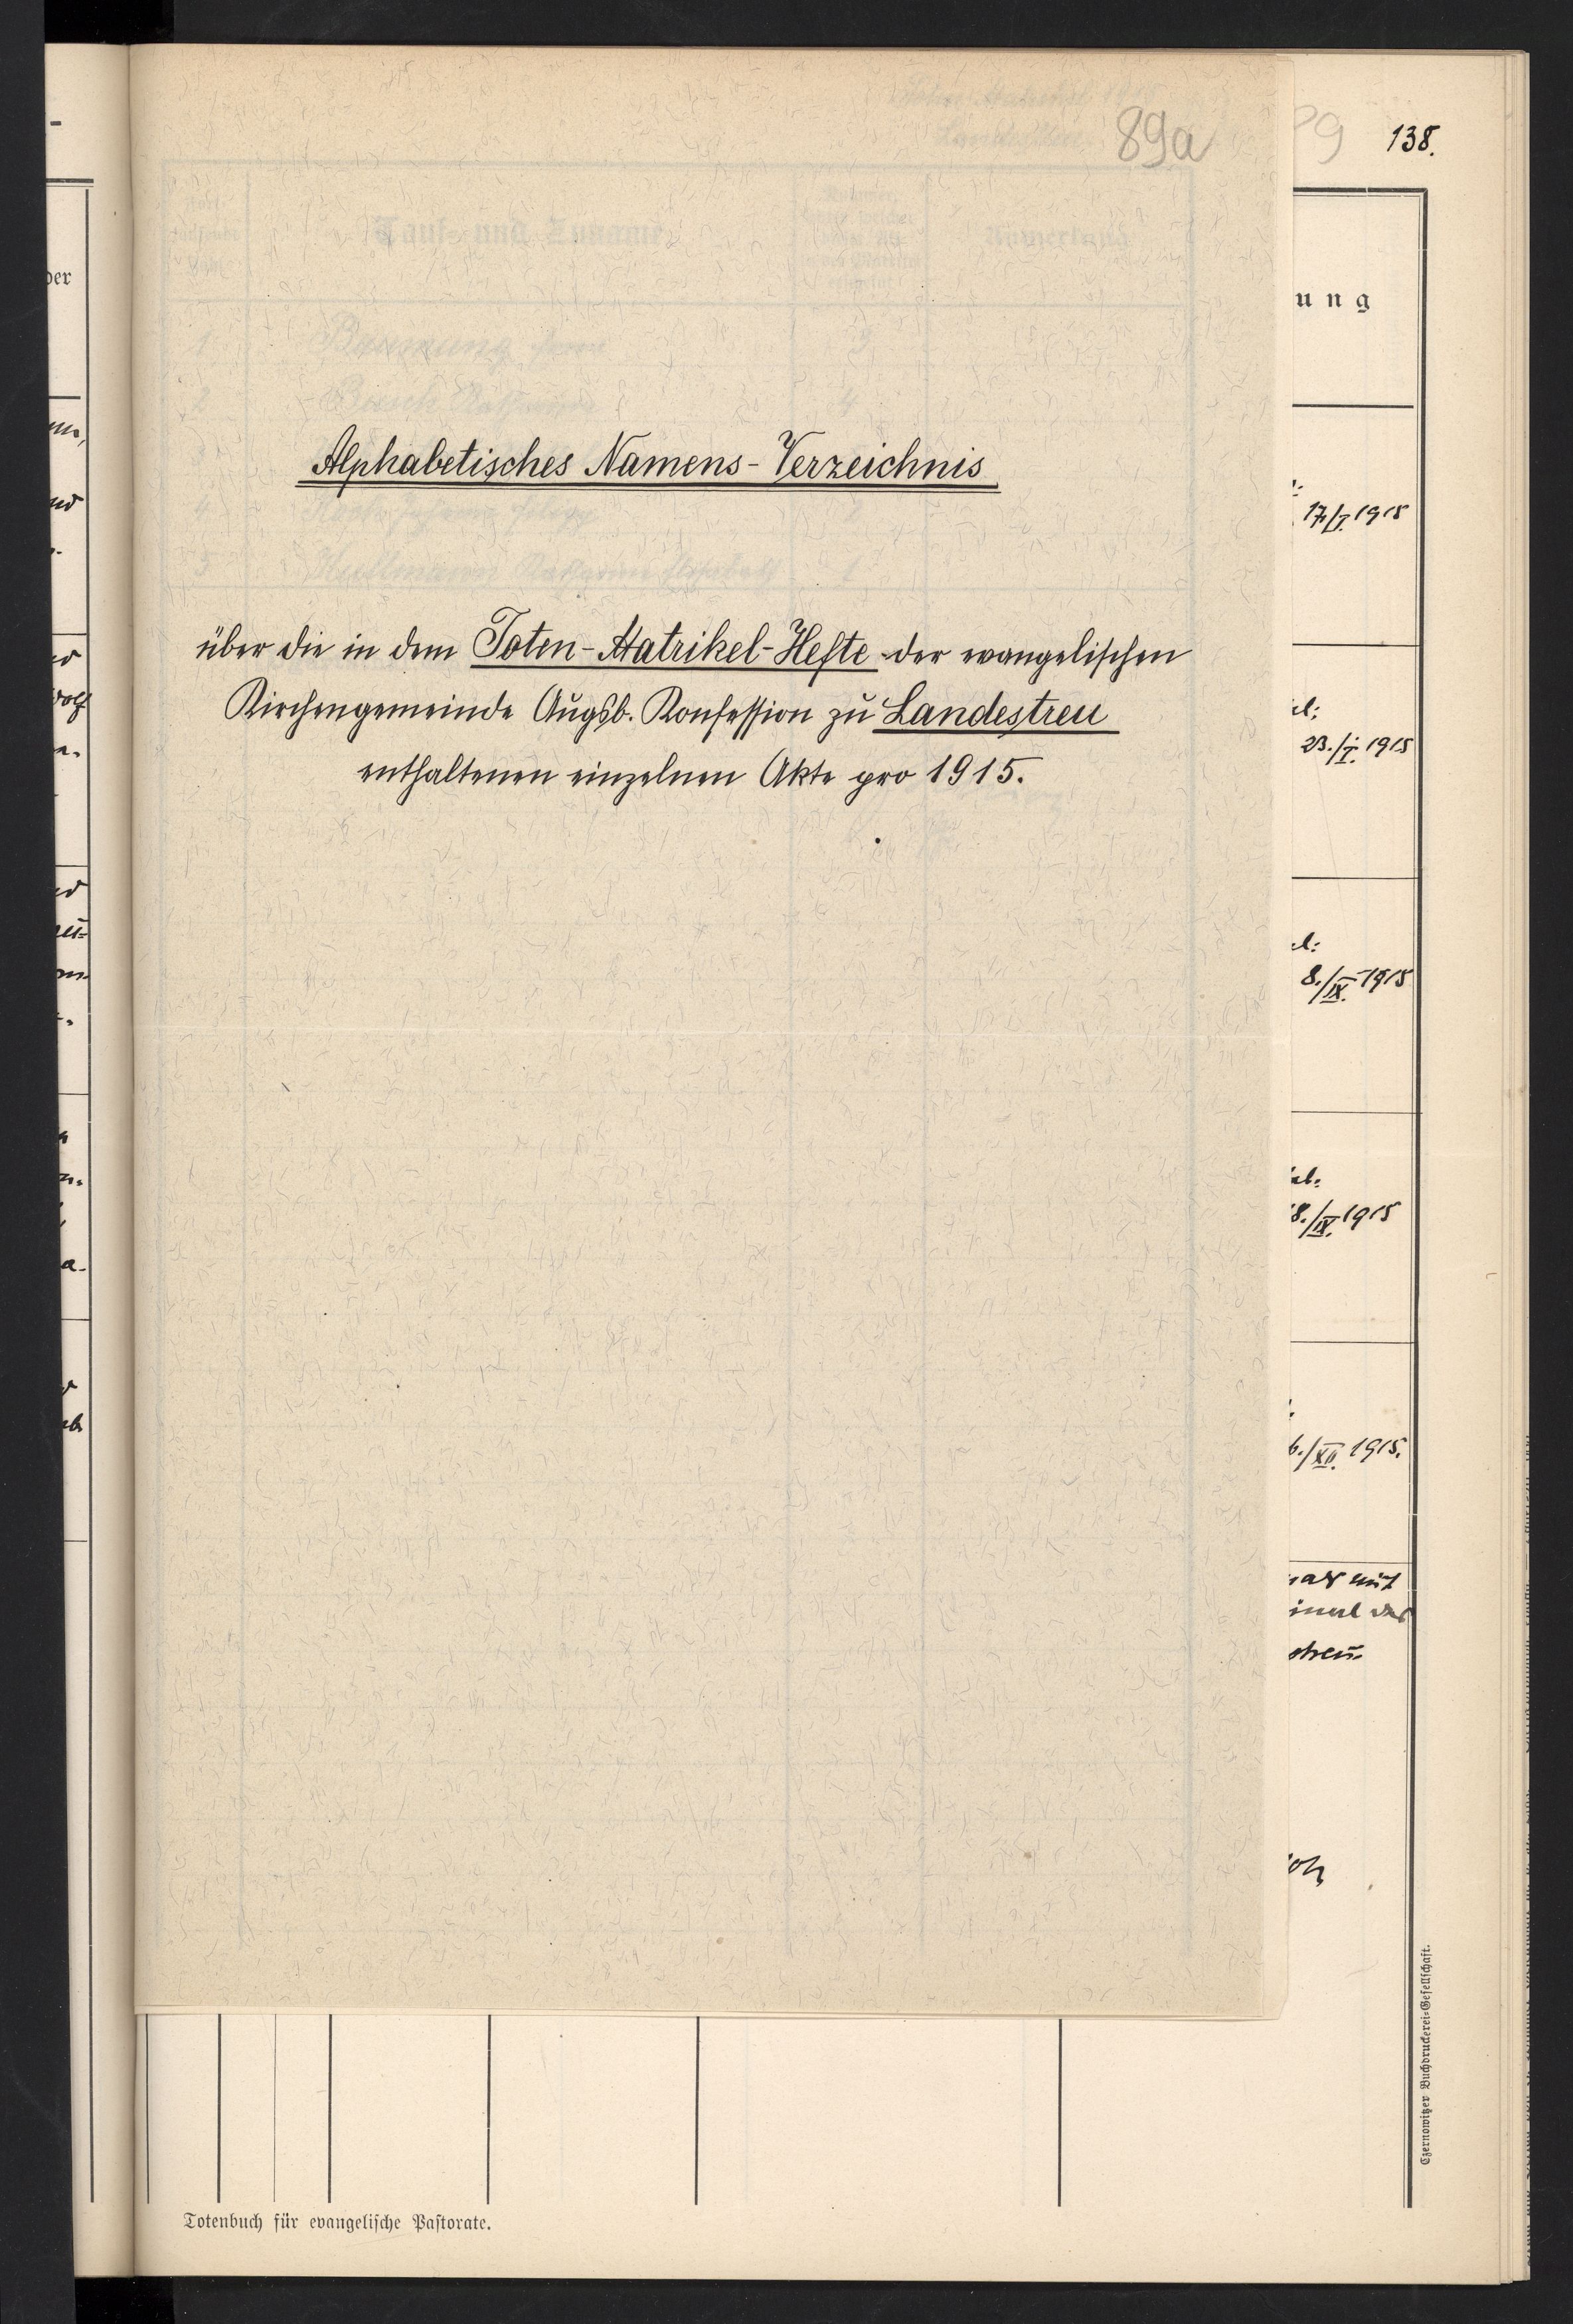 89a
89
138.
Alphabetisches Namens-Verzeichnis
über die in dem Toten-Matrikel-Hefte der evangelischen
Kirchengemeinde Augsb. Konfession zu Landestreu
enthaltenen einzelnen Akte pro 1915.
ber
ung
17./I. 1915
23./I. 1915
8./IX. 1915
8./IX. 1915
6./XII. 1915.
Totenbuch für evangelische Pastorate.
Czernowitzer Buchdruckerei-Gesellschaft.